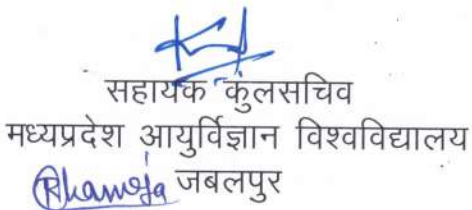 सहायक कुलसचिव
मध्यप्रदेश आयुर्विज्ञान विश्वविद्यालय
जबलपुर